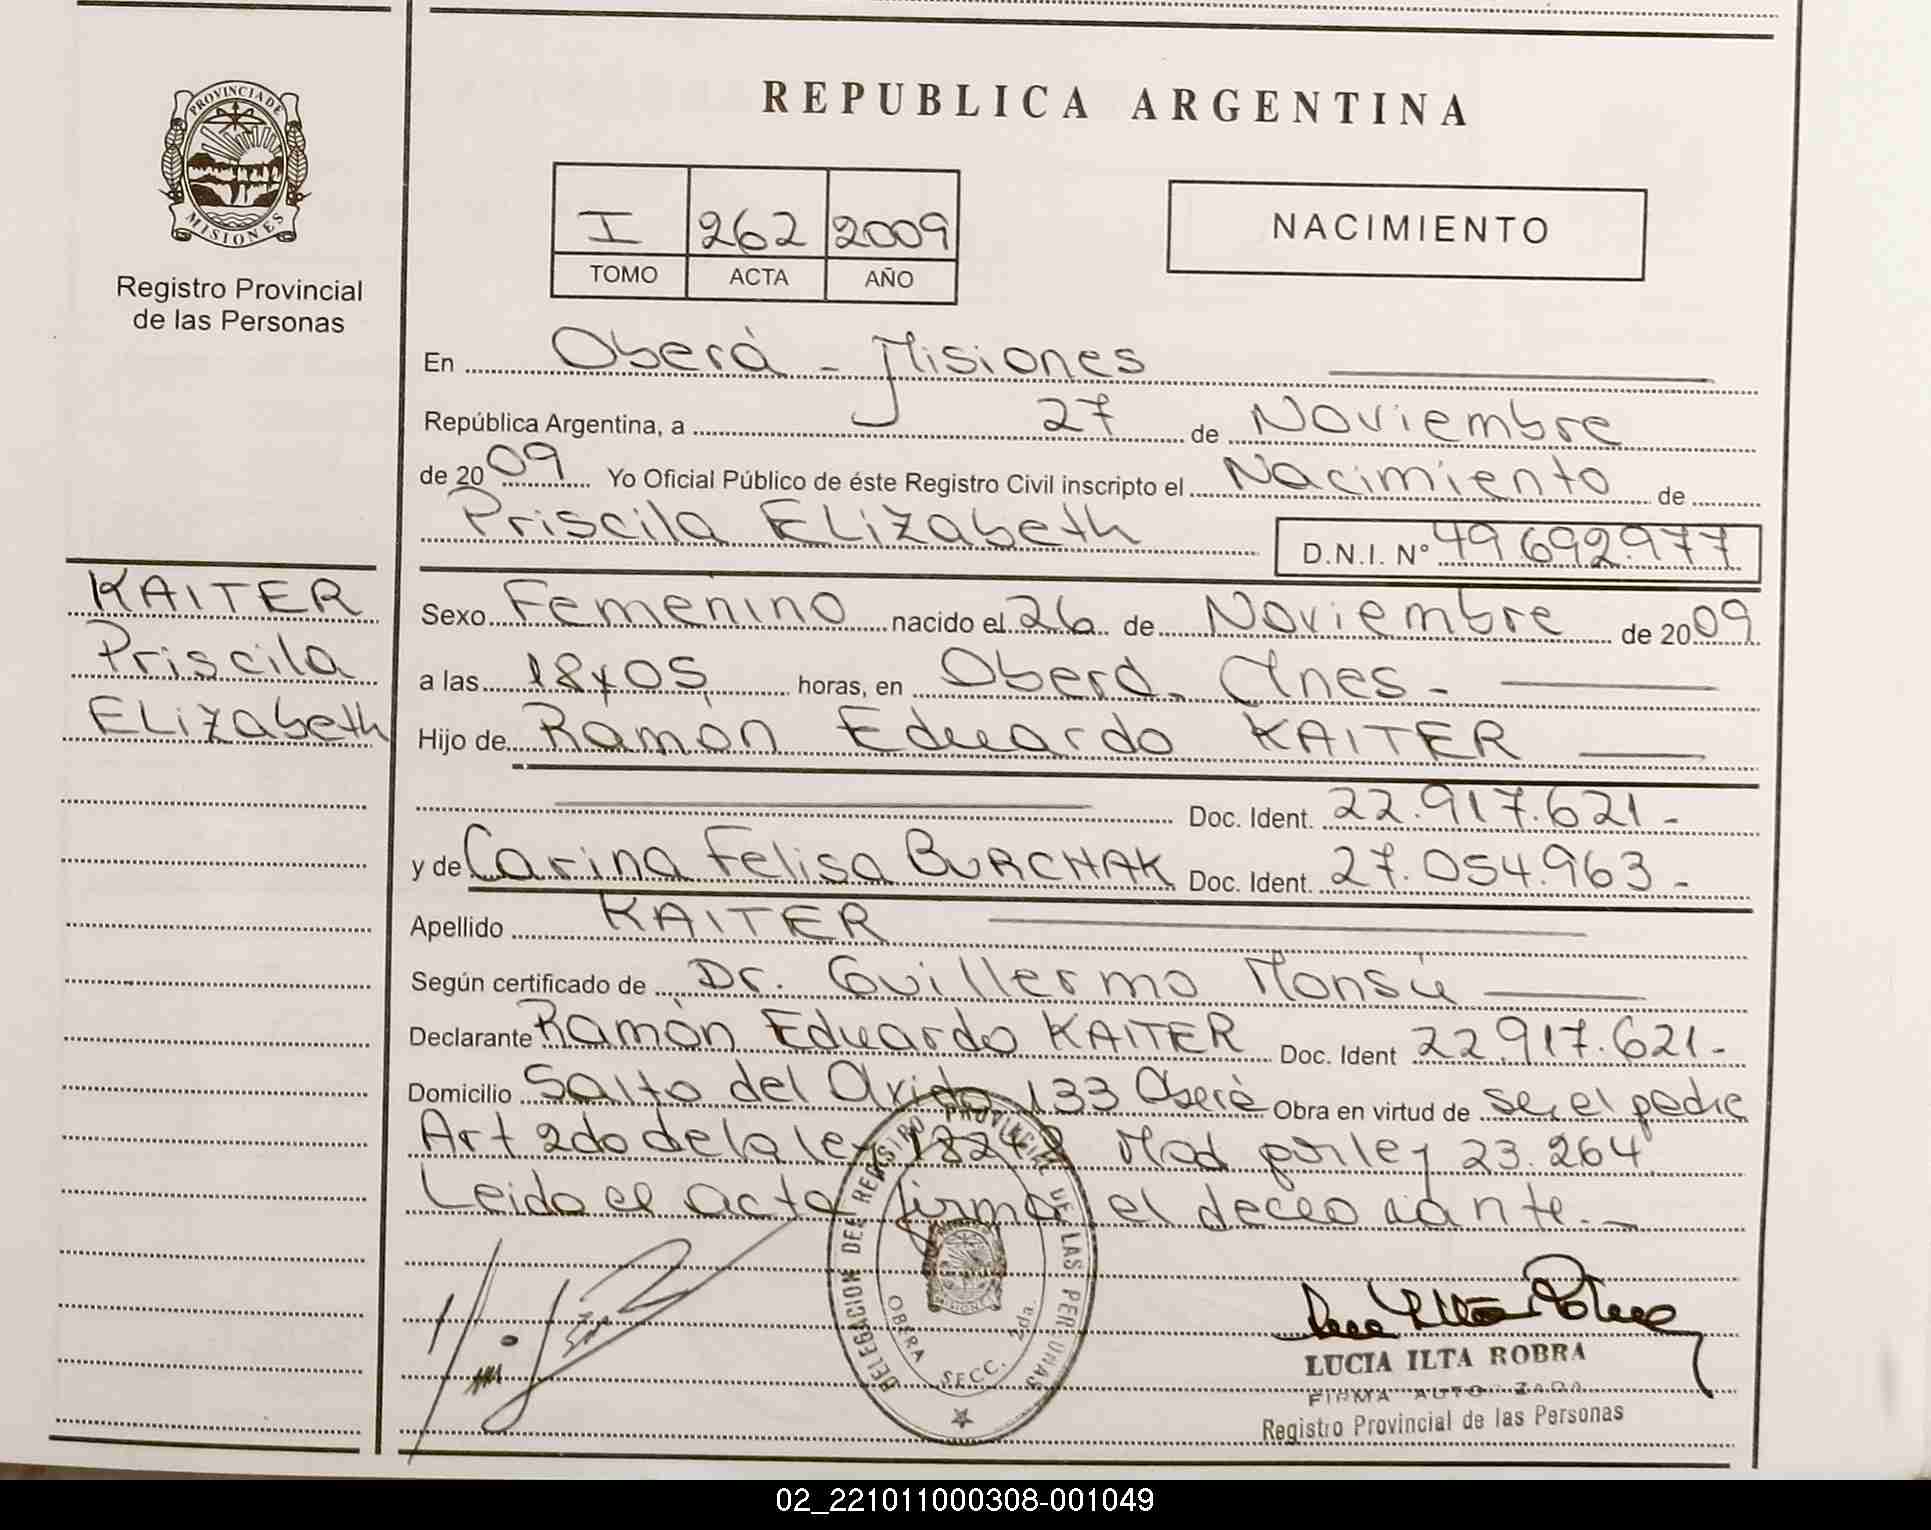 REPUBLICA ARGENTINA
PROVINCIA DE
MISIONES
Registro Provincial
de las Personas
I 262 2009
TOMO ACTA AÑO
NACIMIENTO
En Oberá - Misiones
República Argentina, a 27 de Noviembre
de 2009 Yo Oficial Público de éste Registro Civil inscripto el Nacimiento de
Priscila ELizabeth D.N.I. N° 49.692.977
KAITER
Priscila
ELizabeth
Sexo Femenino nacido el 26 de Noviembre de 2009
a las 18y05 horas, en Oberá - Mnes -
Hijo de Ramón Eduardo KAITER
Doc. Ident. 22.917.621 -
y de Carina Felisa BURCHAK Doc. Ident. 27.054.963 -
Apellido KAITER
Según certificado de Dr. Guillermo Monsú
Declarante Ramón Eduardo KAITER Doc. Ident 22.917.621 -
Domicilio Salto del 133 Oberá Obra en virtud de ser el padre
Art 2do de la ley 18248 Mod por ley 23.264
Leido el acta firma el
DELEGACION DEL REGISTRO PROVINCIAL DE LAS PERSONAS
OBERA SECC. 2da.
MISIONES
LUCIA ILTA ROBRA
FIRMA AUTORIZADA
Registro Provincial de las Personas
02_221011000308-001049